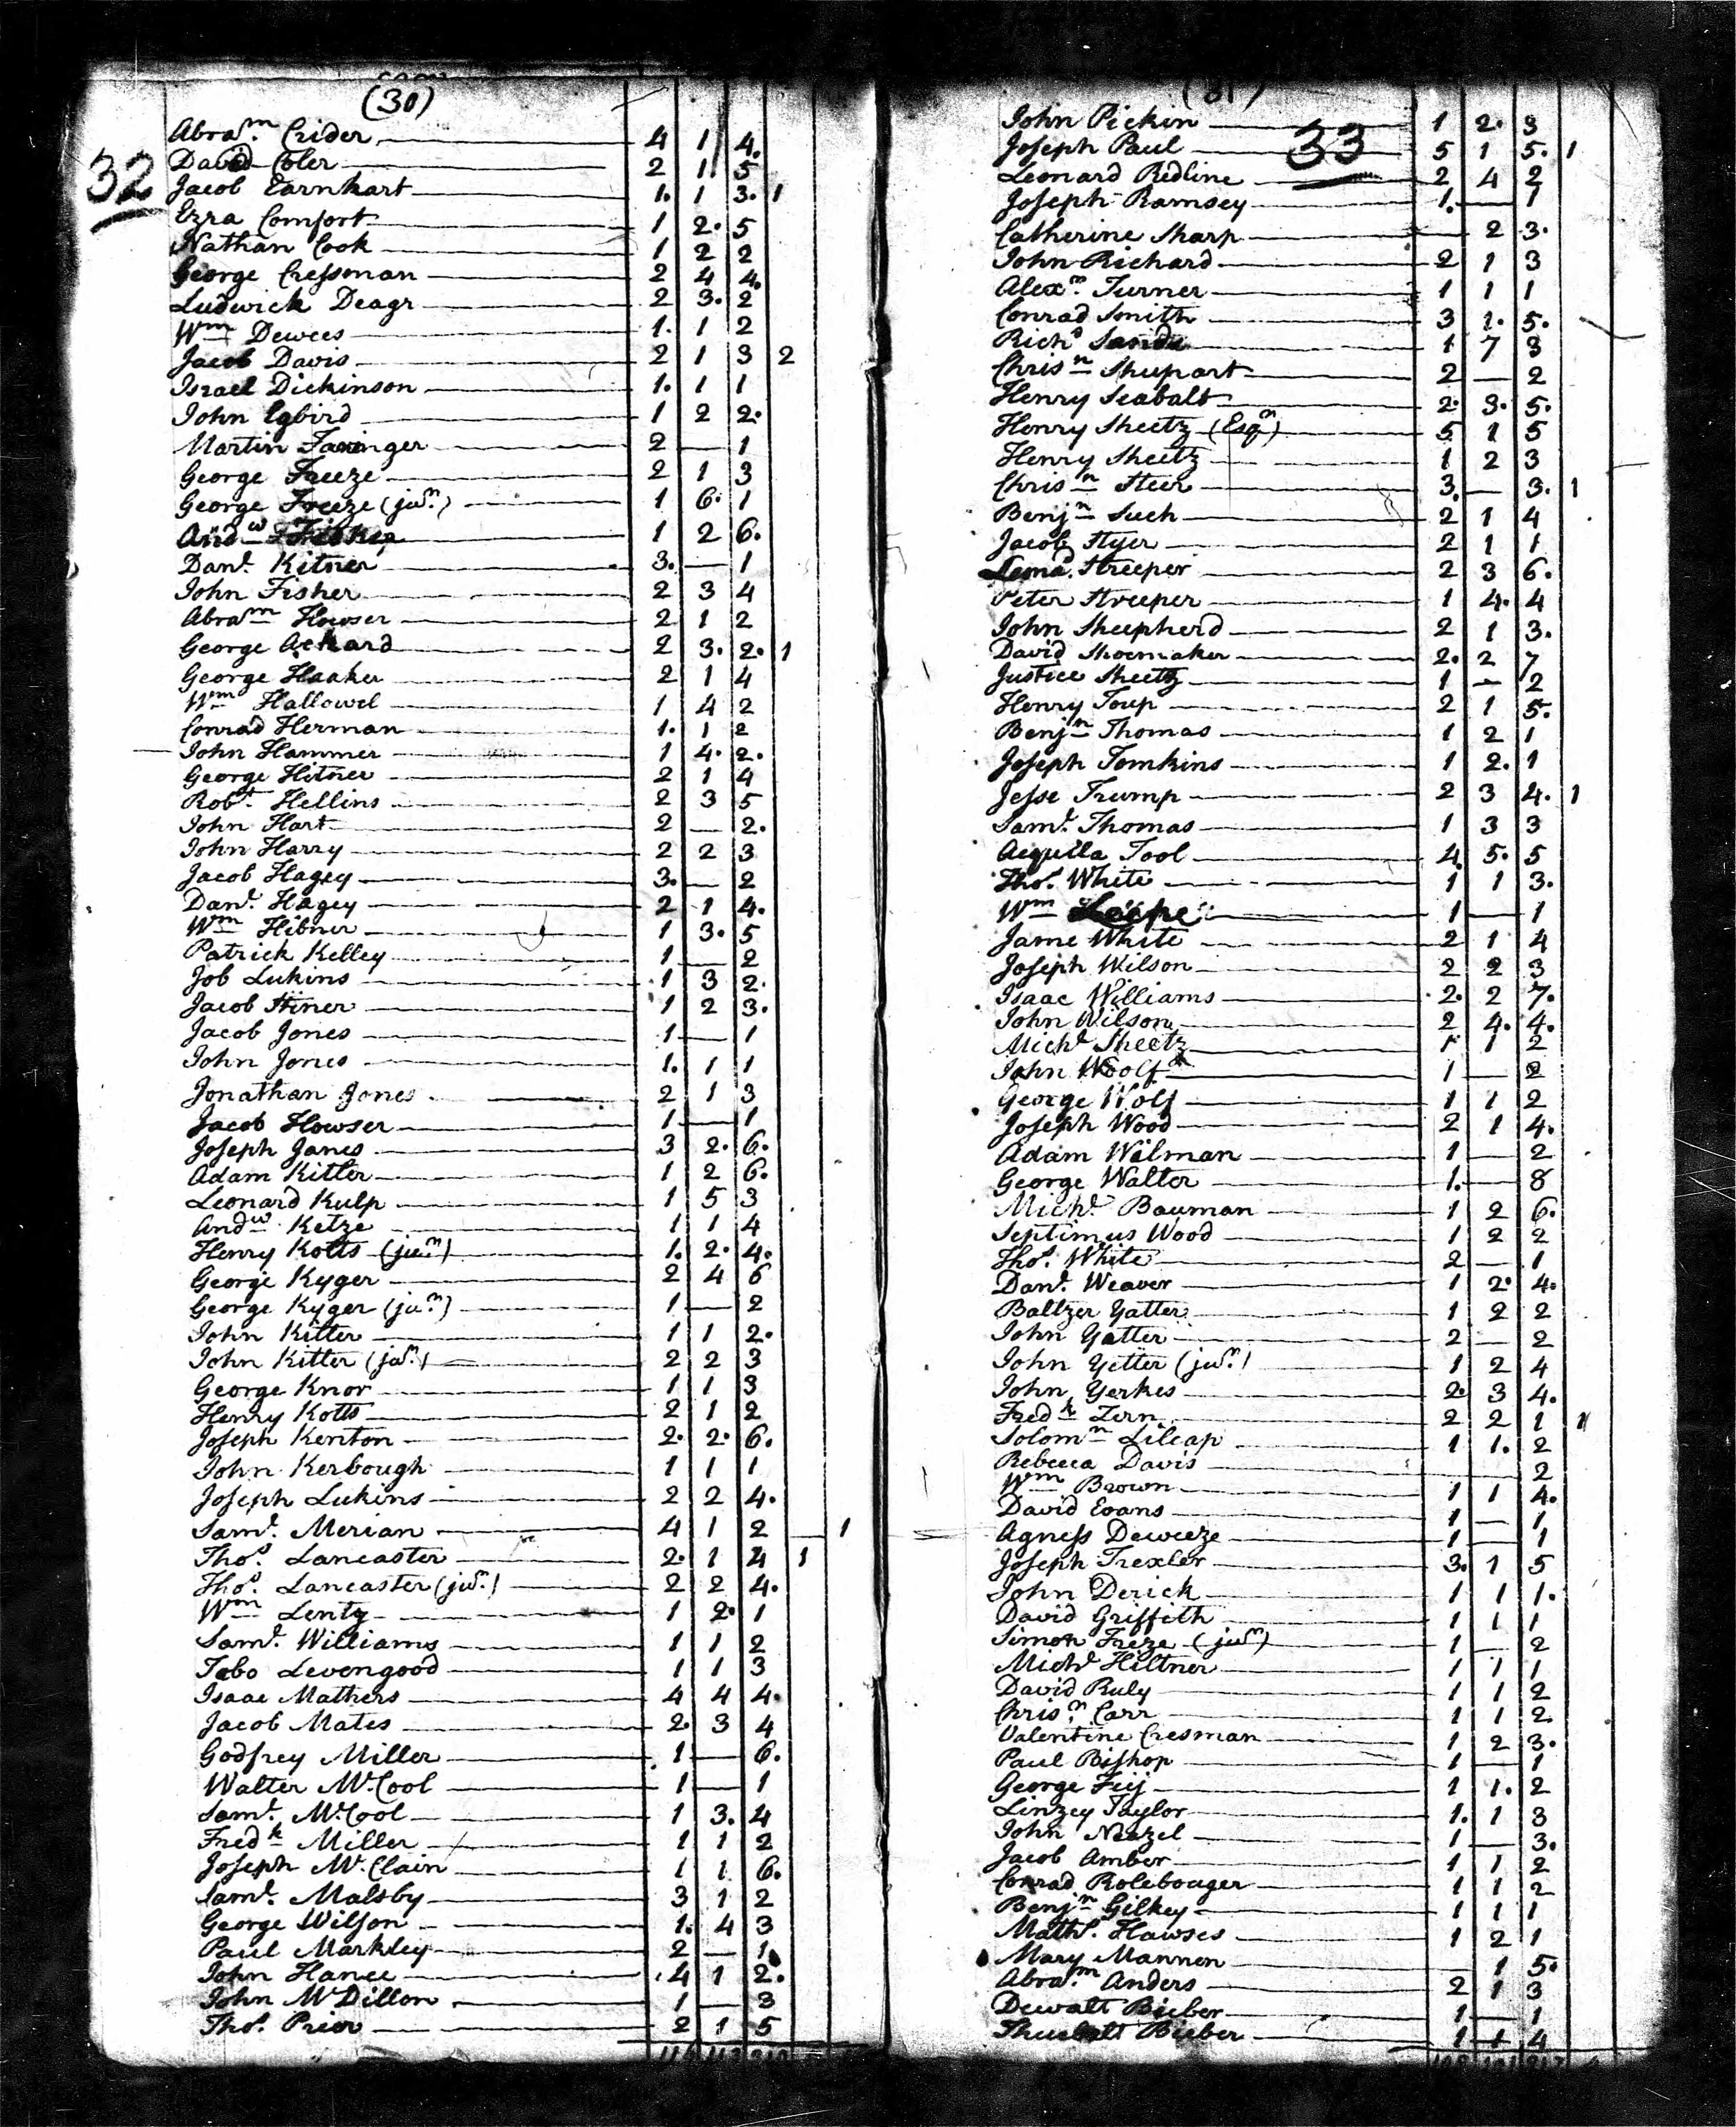 (30)
32
Abra.m Crider 4 1 4.
David Coler 2 1 5
Jacob Earnhart 1. 1 3. 1
Ezra Comfort 1 2. 5
Nathan Cook 1 2 2
George Cressman 2 4 4.
Ludwick Deagr 2 3. 2
Wm Dewees 1. 1 2
Jacob Davis 2 1 3 2
Israel Dickinson 1. 1 1
John Egbird 1 2 2.
Martin 2 — 1
George Freeze 2 1 3
George Freeze (jun.) 1 6. 1
Andw 1 2 6.
Danl. Kitner 3. — 1
John Fisher 2 3 4
Abram Howser 2 1 2
George Achard 2 3. 2. 1
George Haaker 2 1 4
Wm Hallowel 1 4 2
Conrad Herman 1. 1 2
John Hammer 1 4. 2.
George Hitner 2 1 4
Robt. Hellins 2 3 5
John Hart 2 — 2.
John Harry 2 2 3
Jacob Hagey 3. — 2
Danl. Hagey 2 1 4.
Wm Hibner 1 3. 5
Patrick Kelley 1 — 2
Job Lukins 1 3 2.
Jacob Hiner 1 2 3.
Jacob Jones 1 — 1
John Jones 1. 1 1
Jonathan Jones 2 1 3
Jacob Howser 1 — 1
Joseph Janes 3 2. 6.
Adam Kitler 1 2 6.
Leonard Kulp 1 5 3
Andw. Ketze 1 1 4
Henry Kotts (jun.) 1. 2. 4.
George Kyger 2 4 6
George Kyger (jun.) 1 — 2
John Kitler 1 1 2.
John Kitler (jun.) 2 2 3
George Knor 1 1 3
Henry Kotts 2 1 2
Joseph Kenton 2. 2. 6.
John Kerbough 1 1 1
Joseph Lukins 2 2 4.
Saml. Merian 4 1 2 — 1
Thos. Lancaster 2. 1 1
Thos. Lancaster (jun.) 2 2 4.
Wm Lentz 1 2. 1
Saml. Williams 1 1 2
Tobo Levengood 1 1 3
Isaac Mathers 4 4 4.
Jacob Mates 2. 3 4
Godfrey Miller 1 — 6.
Walter Mc.Cool 1 — 1
Saml. Mc.Cool 1 3. 4
Fredk Miller 1 1 2
Joseph Mc.Clain 1 1 6.
Saml. Malsby 3 1 2
George Wilson 1. 4 3
Paul Markley 2 — 1
John Hance 4 1 2.
John McDillon 1 — 3
Thos. Prior 2 1 5
(31)
33
John Pickin 1 2. 3
Joseph Paul 5 1 5. 1
Leonard Redline 2 4 2
Joseph Ramsey 1. — 1
Catherine Sharp — 2 3.
John Richard 2 1 3
Alexm. Turner 1 1 1
Conrad Smith 3 1. 5.
Richd Sands 1 7 3
Chrisn Shupart 2 — 2
Henry Seabalt 2. 3. 5.
Henry Sheetz (Esqr) 5 1 5
Henry Sheetz 1 2 3
Chrisn Steer 3. — 3. 1
Benjn Such 2 1 4
Jacob Styer 2 1 1
Streeper 2 3 6.
Peter Streeper 1 4. 4
John Sheepherd 2 1 3.
David Shoemaker 2. 2 7
Justice Sheetz 1 — 2
Henry Toup 2 1 5.
Benjn Thomas 1 2 1
Joseph Tomkins 1 2. 1
Jesse Trump 2 3 4. 1
Saml. Thomas 1 3 3
Acquilla Tool 4. 5. 5
Thos. White 1 1 3.
Wm 1 — 1
Jame White 2 1 4
Joseph Wilson 2 2 3
Isaac Williams 2. 2 7.
John Wilson 2 4. 4.
Michl Sheetz 1 1 2
John Woolf 1 — 2
George Wolf 1 1 2
Joseph Wood 2 1 4.
Adam Wilman 1 — 2
George Walter 1. — 8
Michl. Bauman 1 2 6.
Septimus Wood 1 2 2
Thos. White 2 — 1
Danl. Weaver 1 2. 4.
Baltzer Yatter 1 2 2
John Yatter 2 — 2
John Yetter (jun.) 1 2 4
John Yerkes 2. 3 4.
Fredk Zern 2 2 1 1
Solomn Lilcap 1 1. 2
Rebecca Davis — — 2
Wm Brown 1 1 4.
David Evans 1 — 1
Agness Deweeze 1 — 1
Joseph Trexler 3. 1 5
John Derick 1 1 1.
David Griffith 1 1 1
Simon Freze (jun) 1 — 2
Michl Hiltner 1 1 1
David Ruly 1 1 2
Chris.n Carr 1 1 2.
Valentine Cresman 1 2 3.
Paul Bishop 1 — 1
George Feij 1 1. 2
Linzey Taylor 1. 1 3
John Neazel 1 — 3.
Jacob Amber 1 1 2
Conrad Rolebouger 1 1 2
Benjn Gilkey 1 1 1
Mathw. Hawses 1 2 1
Mary Mannon — 1 5.
Abra.m Anders 2 1 3
Dewalt Bieber 1 — 1
Bieber 1 1 4